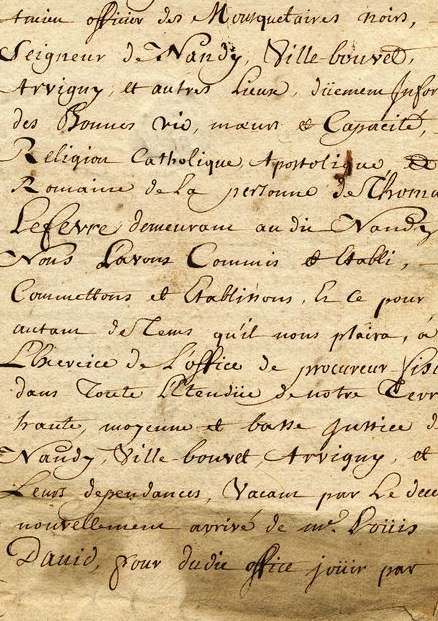 ancien officier des Mousquetaires noirs,
Seigneur de Nandy, Ville-bouvet,
Arvigny, et autres Lieux, düement Infor
des Bonnes vie, mœurs & Capacité,
Religion Catholique Apostolique &
Romaine de la personne de Thoma
Lefevre demeurant audit Nandy
Nous Lavons Commis & Etabli,
Commettons et Etablissons, Et ce pour
autant de Tems qu'il nous plaira, a
L'Exercice de L'office de procureur fisc
dans Toute L'Etendüe de notre Terr
haute, moyenne et basse Justice d
Nandy, Ville-bouvet, Arvigny, et
Leurs dependances, Vacant par Le dec
nouvellement arrivé de me. Loüis
David, pour dudit office joüir par